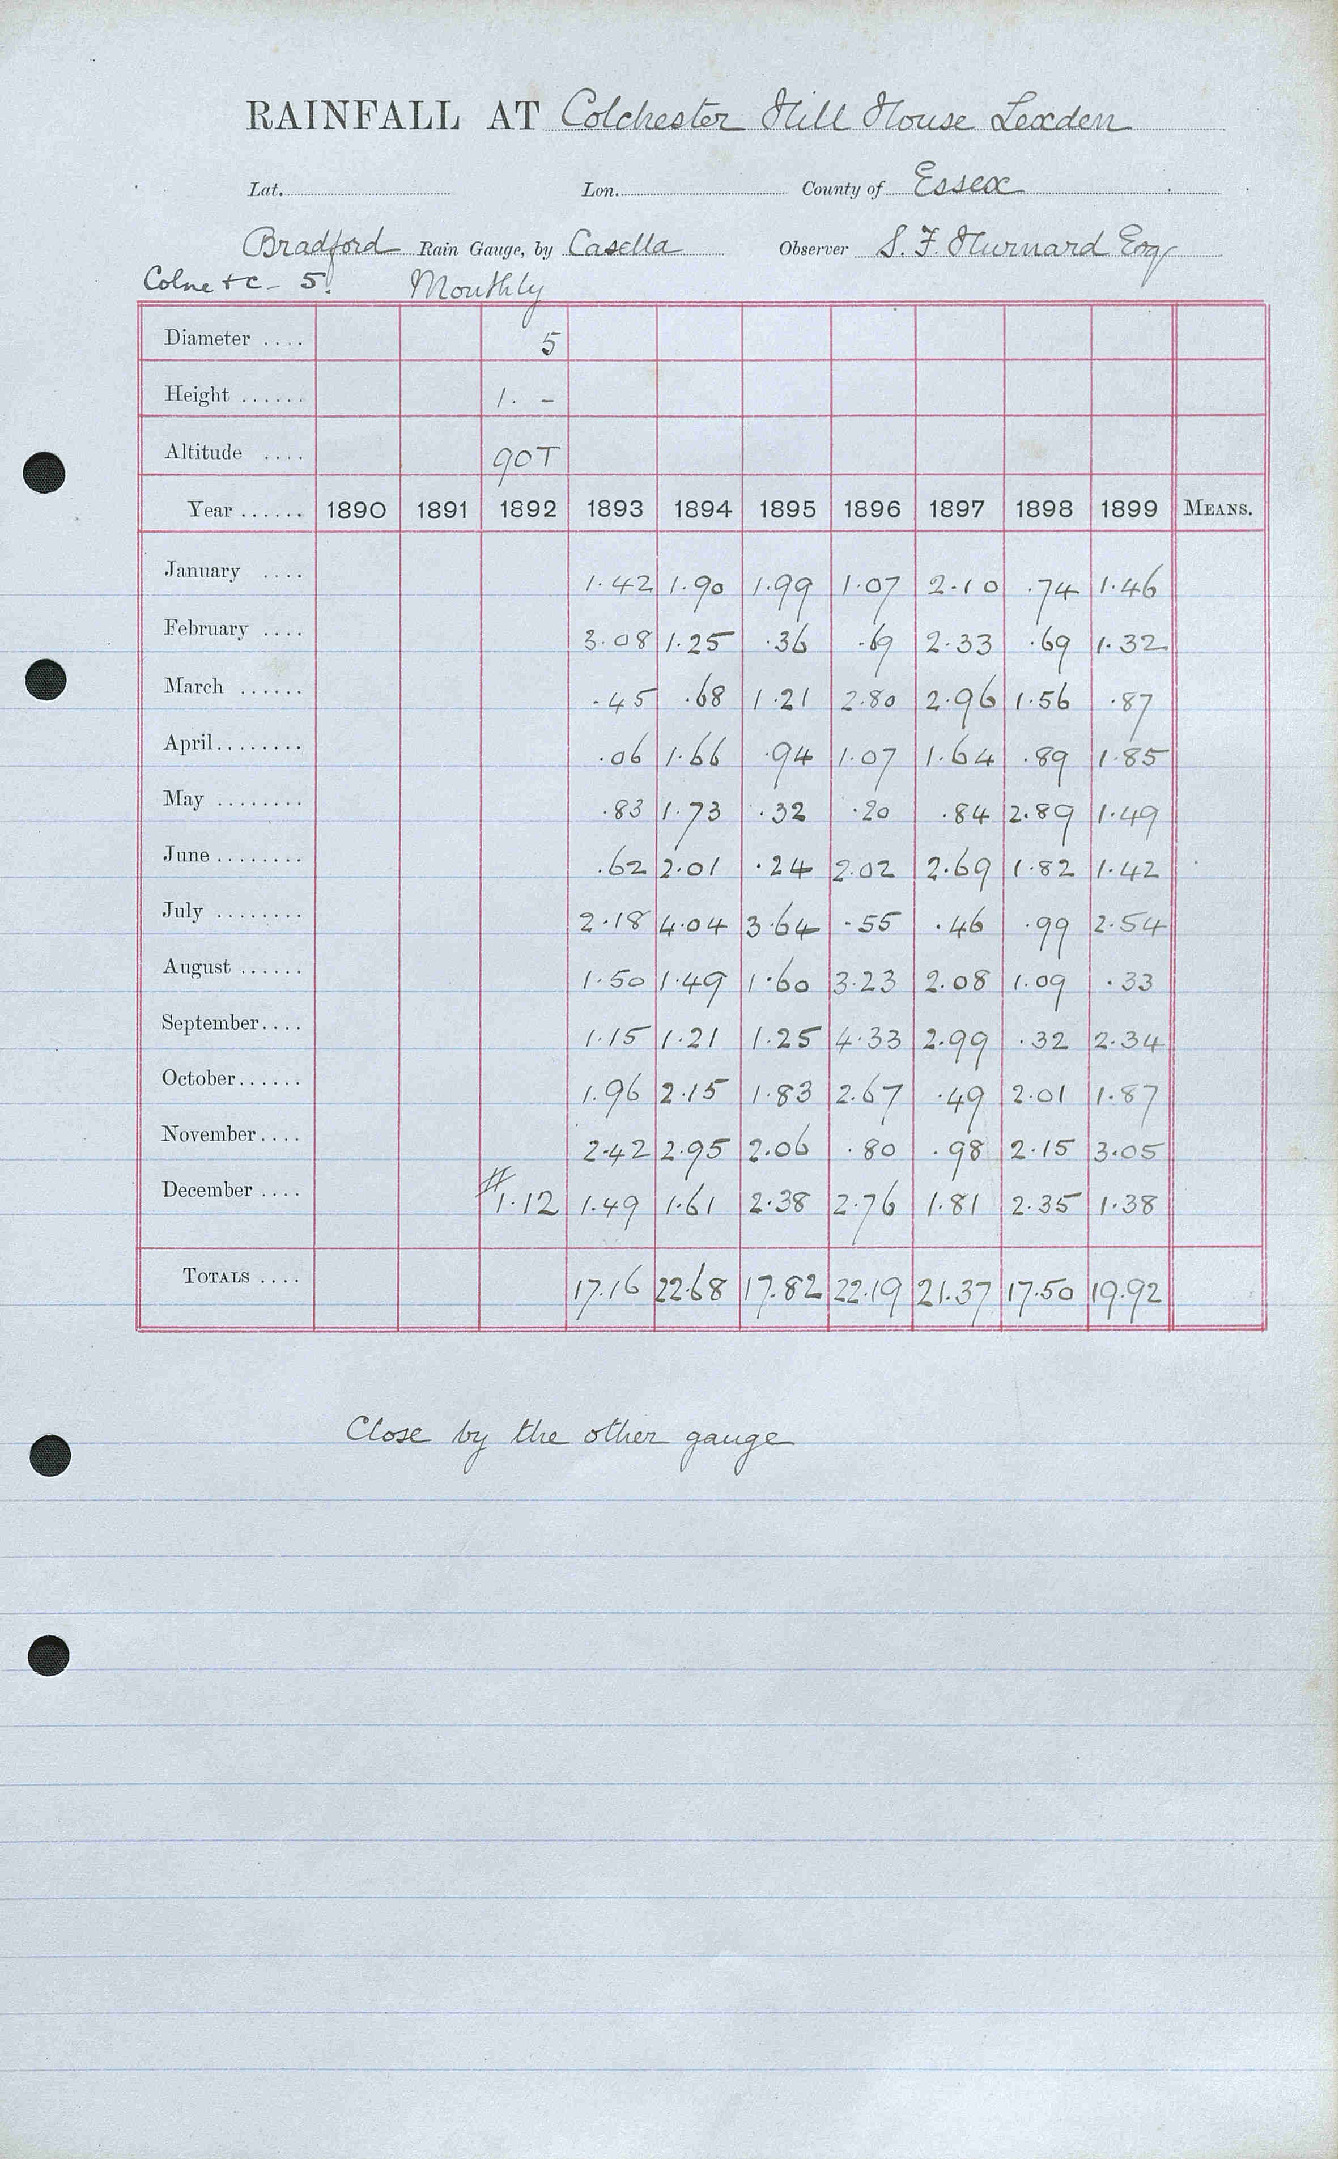 RAINFALL AT Colchester Hill House Lexden
Lat. Lon. County of Essex
Bradford Rain Gauge, by Casella Observer S. F. Hurnard Esq
Colne &c - 5. Monthly
Diameter .... 5
Height ...... 1. -
Altitude .... 90T
Year ...... 1890 1891 1892 1893 1894 1895 1896 1897 1898 1899 MEANS.
January .... 1.42 1.90 1.99 1.07 2.10 .74 1.46
February .... 3.08 1.25 .36 .69 2.33 .69 1.32
March ...... .45 .68 1.21 2.80 2.96 1.56 .87
April........ .06 1.66 .94 1.07 1.64 .89 1.85
May ........ .83 1.73 .32 .20 .84 2.89 1.49
June........ .62 2.01 .24 2.02 2.69 1.82 1.42
July ........ 2.18 4.04 3.64 .55 .46 .99 2.54
August ...... 1.50 1.49 1.60 3.23 2.08 1.09 .33
September.... 1.15 1.21 1.25 4.33 2.99 .32 2.34
October...... 1.96 2.15 1.83 2.67 .49 2.01 1.87
November.... 2.42 2.95 2.06 .80 .98 2.15 3.05
December .... # 1.12 1.49 1.61 2.38 2.76 1.81 2.35 1.38
TOTALS .... 17.16 22.68 17.82 22.19 21.37 17.50 19.92
Close by the other gauge